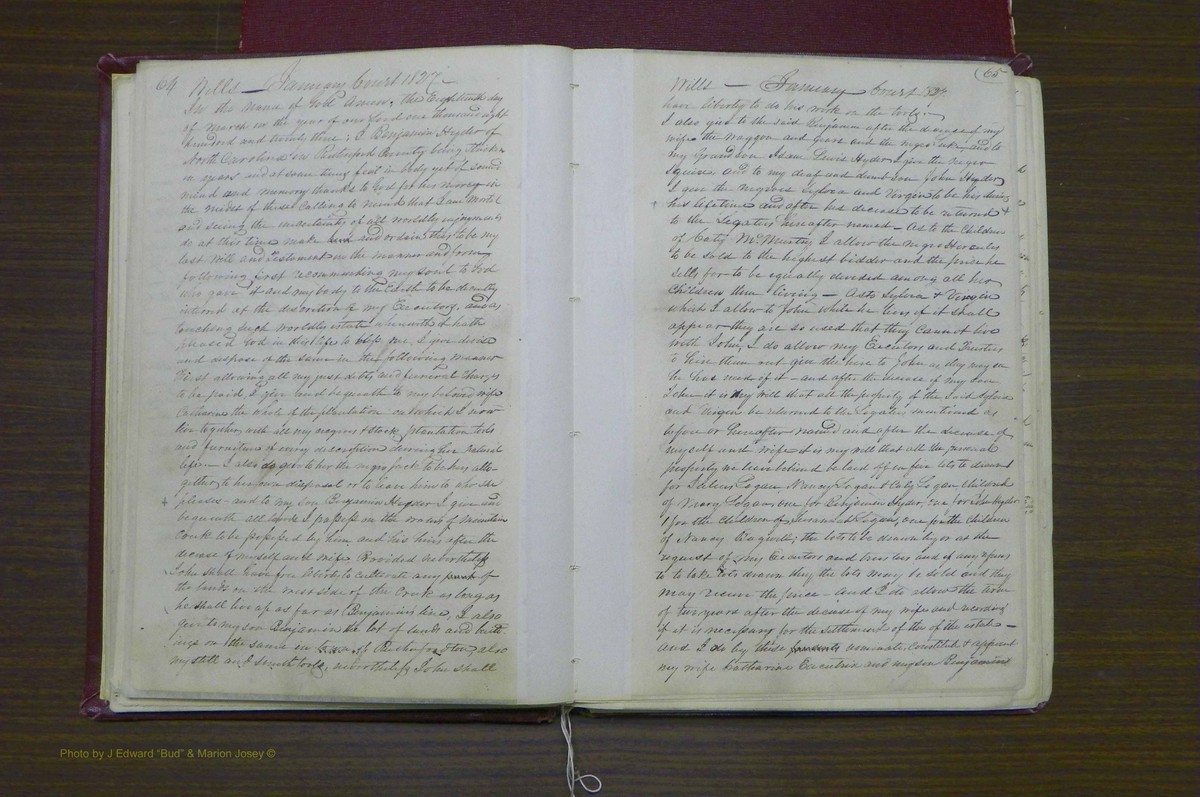 64 Wills — January Court 1827 —
In the name of God Amen, the Eighteenth day
of March in the year of our Lord one thousand eight
hundred and twenty three; I Benjamin Hyder of
North Carolina in Rutherford County being stricken
in years and at some times feel in body yet of sound
mind and memory thanks to God for his mercy in
the midst of these calling to mind that I am mortal
and seeing the uncertainty of all worldly enjoyments
do at this time make and ordain this to be my
last Will and Testament in the manner and form
following first recommending my soul to God
who gave it and my body to the Earth to be decently
interred at the discretion of my Executors, and as
touching such worldly estate wherewith it hath
pleased God in this life to bless me, I give devise
and dispose of the same in the following manner
First allowing all my just debts and funeral Charges
to be paid, I give and bequeath to my beloved wife
Catharine the whole of the plantation on which I now
live together with all my negroes & stock, plantation tools
and furniture of every description during her natural
life — I also do give to her the negro Jack to be hers alto-
gether to her own disposal or to leave him to who she
pleases — and to my son Benjamin Hyder I give and
bequeath all lands I possess on the waters of Mountain
Creek to be possessed by him and his heirs after the
decease of myself and wife Provided nevertheless
John shall have free liberty to cultivate any part of
the lands on the west side of the Creek as long as
he shall live up as far as Benjamins line, I also
give to my son Benjamin the lot of lands and build-
ings on the same in town of Rutherfordton, also
my still and smith tools, nevertheless John shall
Wills — January Court 1827
65
have liberty to do his work on the tools —
I also give to the said Benjamin after the decease of my
wife the waggon and gears and the negro and to
my Grandson Adam Lewis Hyder I give the negro
Squire and to my deaf and dumb Son John Hyder
I give the Negroes Sylvia and Virgin to be his during
his lifetime and after his decease to be returned
to the Legatees hereafter named — As to the Children
of Caty McMurtry I allow the negro Hercules
to be sold to the highest bidder and the price he
sells for to be equally divided among all her
Children then living — As to Sylvia & Virgin
what I allow to John while he lives if it shall
appear they are so used that they Cannot live
with John, I do allow my Executors and Trustees
to hire them out give the hire to John as they may see
he has need of it — and after the decease of my son
John it is my will that all the property of the said Sylvia
and Virgin be returned to the Legatees mentioned as
before or hereafter named and after the decease of
myself and Wife it is my will that all the personal
property we leave behind be laid off in five lots to be drawn
for Logan, Nancy Logan & Caty Logan Children
of Mary Logan, one for Benjamin Hyder, one for John Hyder
1 for the Children of Logan, one for the Children
of Nancy the lots to be drawn by or at the
request of my Executors and trustees and if any refuses
to take lots drawn they the lots may be sold and they
may receive the price — and I do allow the term
of two years after the decease of my wife and
if it is necessary for the settlement of the estate —
and I do by these presents nominate Constitute & appoint
my wife Katharine Executrix and my son Benjamin
Photo by J Edward "Bud" & Marion Josey ©